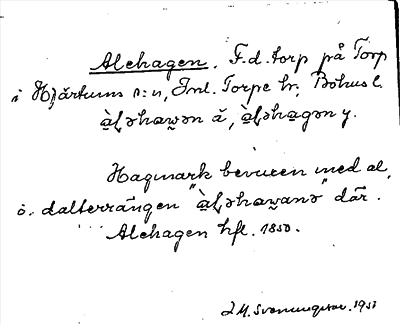 Alehagen. F.d. torp på Torp
i Hjärtums s:n, Inl. Torpe hr, Bohusl.
à̱l̥əhaw̱ən ä, à̱l̥əhagən y.
Hagmark bevuxen med al,
i dalterrängen "à̱l̥əhaw̱anə" där.
Alehagen hfl. 1850.
1951